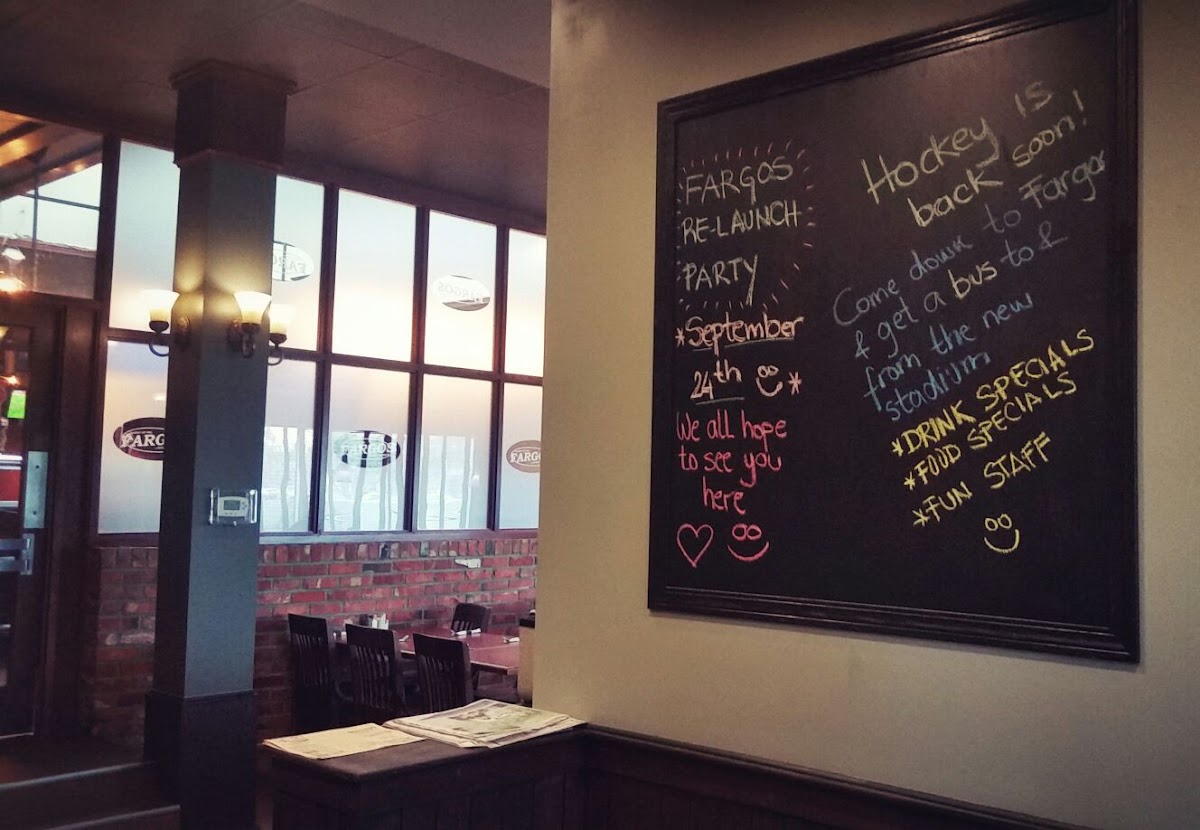 FARGOS
RE-LAUNCH
PARTY
*September
24th *
We all hope
to see you
here
Hockey is
back soon!
Come down to Fargos
& get a bus to &
from the new
stadium
*DRINK SPECIALS
*FOOD SPECIALS
*FUN STAFF
FARGOS
FARGOS
FARGOS